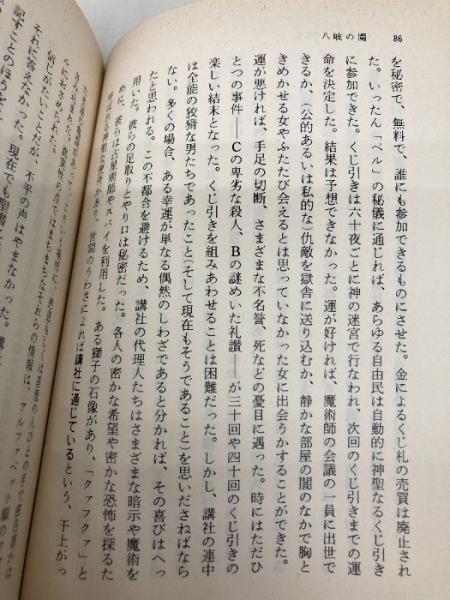 86
八岐の園
を秘密で、無料で、誰にも参加できるものにさせた。金によるくじ札の売買は廃止され
た。いったん「ベル」の秘儀に通じれば、あらゆる自由民は自動的に神聖なるくじ引き
に参加できた。くじ引きは六十夜ごとに神の迷宮で行なわれ、次回のくじ引きまでの運
命を決定した。結果は予想できなかった。運が好ければ、魔術師の会議の一員に出世で
きるか、(公的あるいは私的な)仇敵を獄舎に送り込むか、静かな部屋の闇のなかで胸と
きめかせる女やふたたび会えるとは思っていなかった女に出会うかすることができた。
運が悪ければ、手足の切断、さまざまな不名誉、死などの憂目に遇った。時にはただひ
とつの事件――Cの卑劣な殺人、Bの謎めいた礼讃――が三十回や四十回のくじ引きの
楽しい結末となった。くじ引きを組みあわせることは困難だった。しかし、講社の連中
は全能の狡猾な男たちであったこと(そして現在もそうであること)を思いださねばなら
ない。多くの場合、ある幸運が単なる偶然のしわざであると分かれば、その喜びはへっ
たと思われる。この不都合を避けるため、講社の代理人たちはさまざまな暗示や魔術を
用いた。彼らの足取りややり口は秘密だった。各人の密かな希望や密かな恐怖を探るた
めに、彼らは占星術師やスパイを利用した。ある獅子の石像があり、「クァフクァ」と
呼ばれる神聖な
世間のうわさによれば講社に通じているという、干上がっ
それらの情報は、アルファベット順の
それに答えなかった。
記すことのほうを
不平の声はやまなかった。
現在でも聖書に